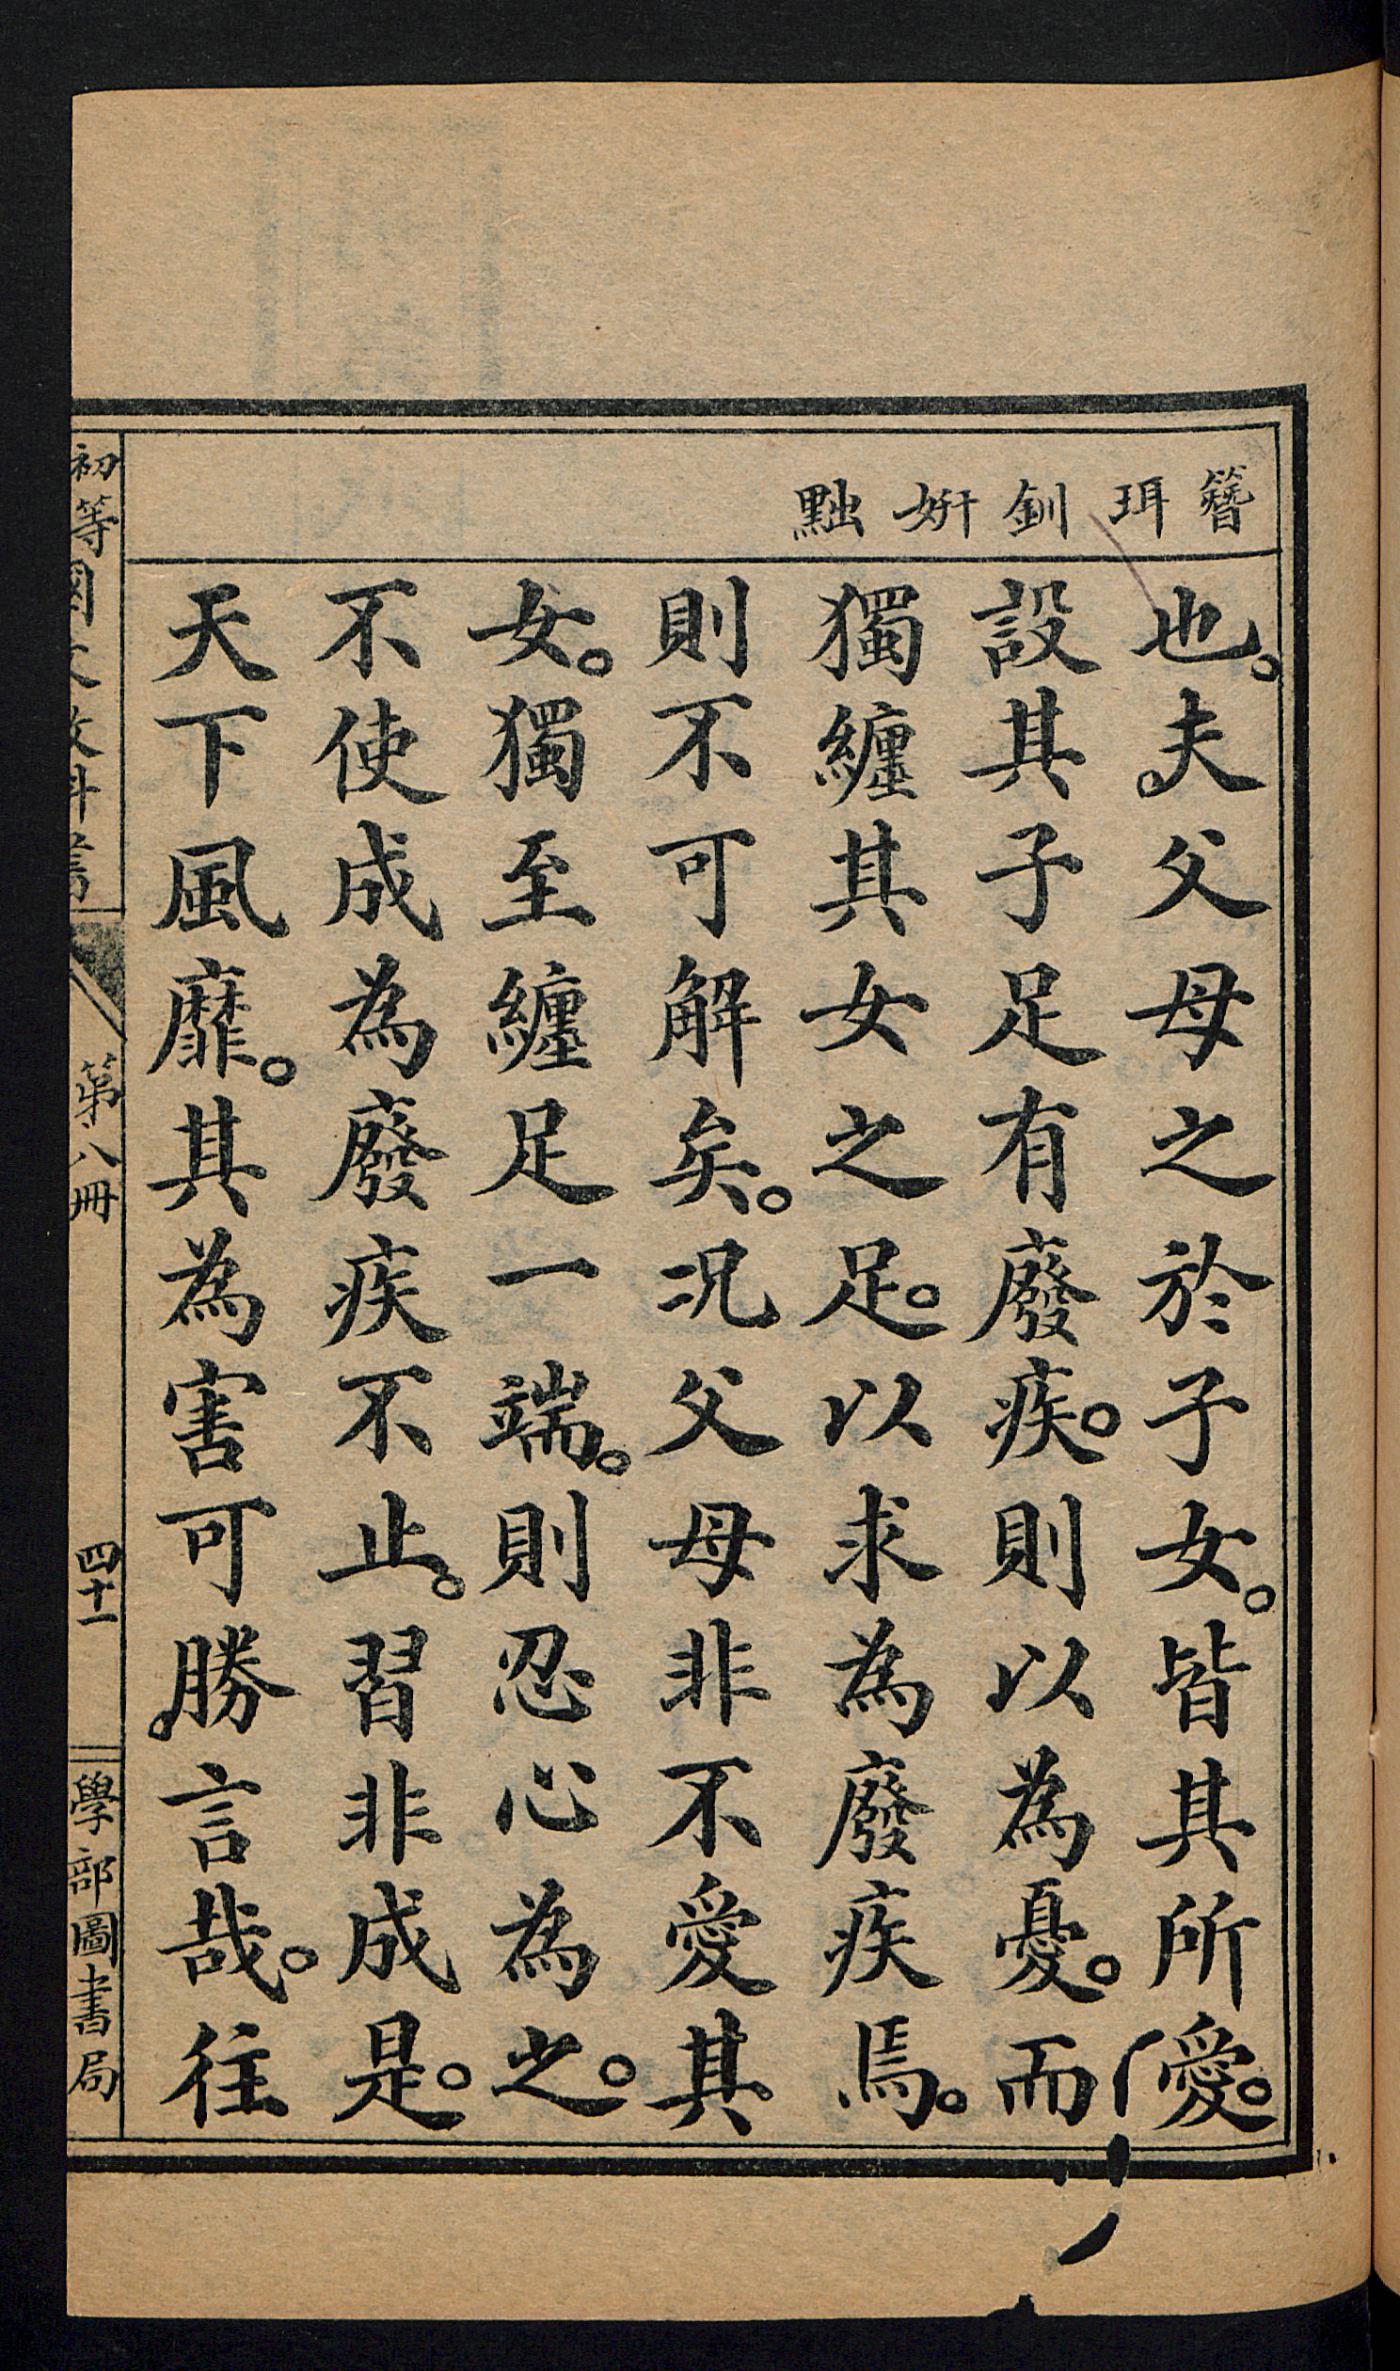 簪珥釧妍黜
也。夫父母之於子女。皆其所愛。
設其子足有廢疾。則以為憂。而
獨纏其女之足。以求為廢疾焉。
則不可解矣。况父母非不愛其
女。獨至纏足一端。則忍心為之。
不使成為廢疾不止。習非成是。
天下風靡。其為害可勝言哉。往
初等國文教科書
第八冊
四十一
學部圖書局